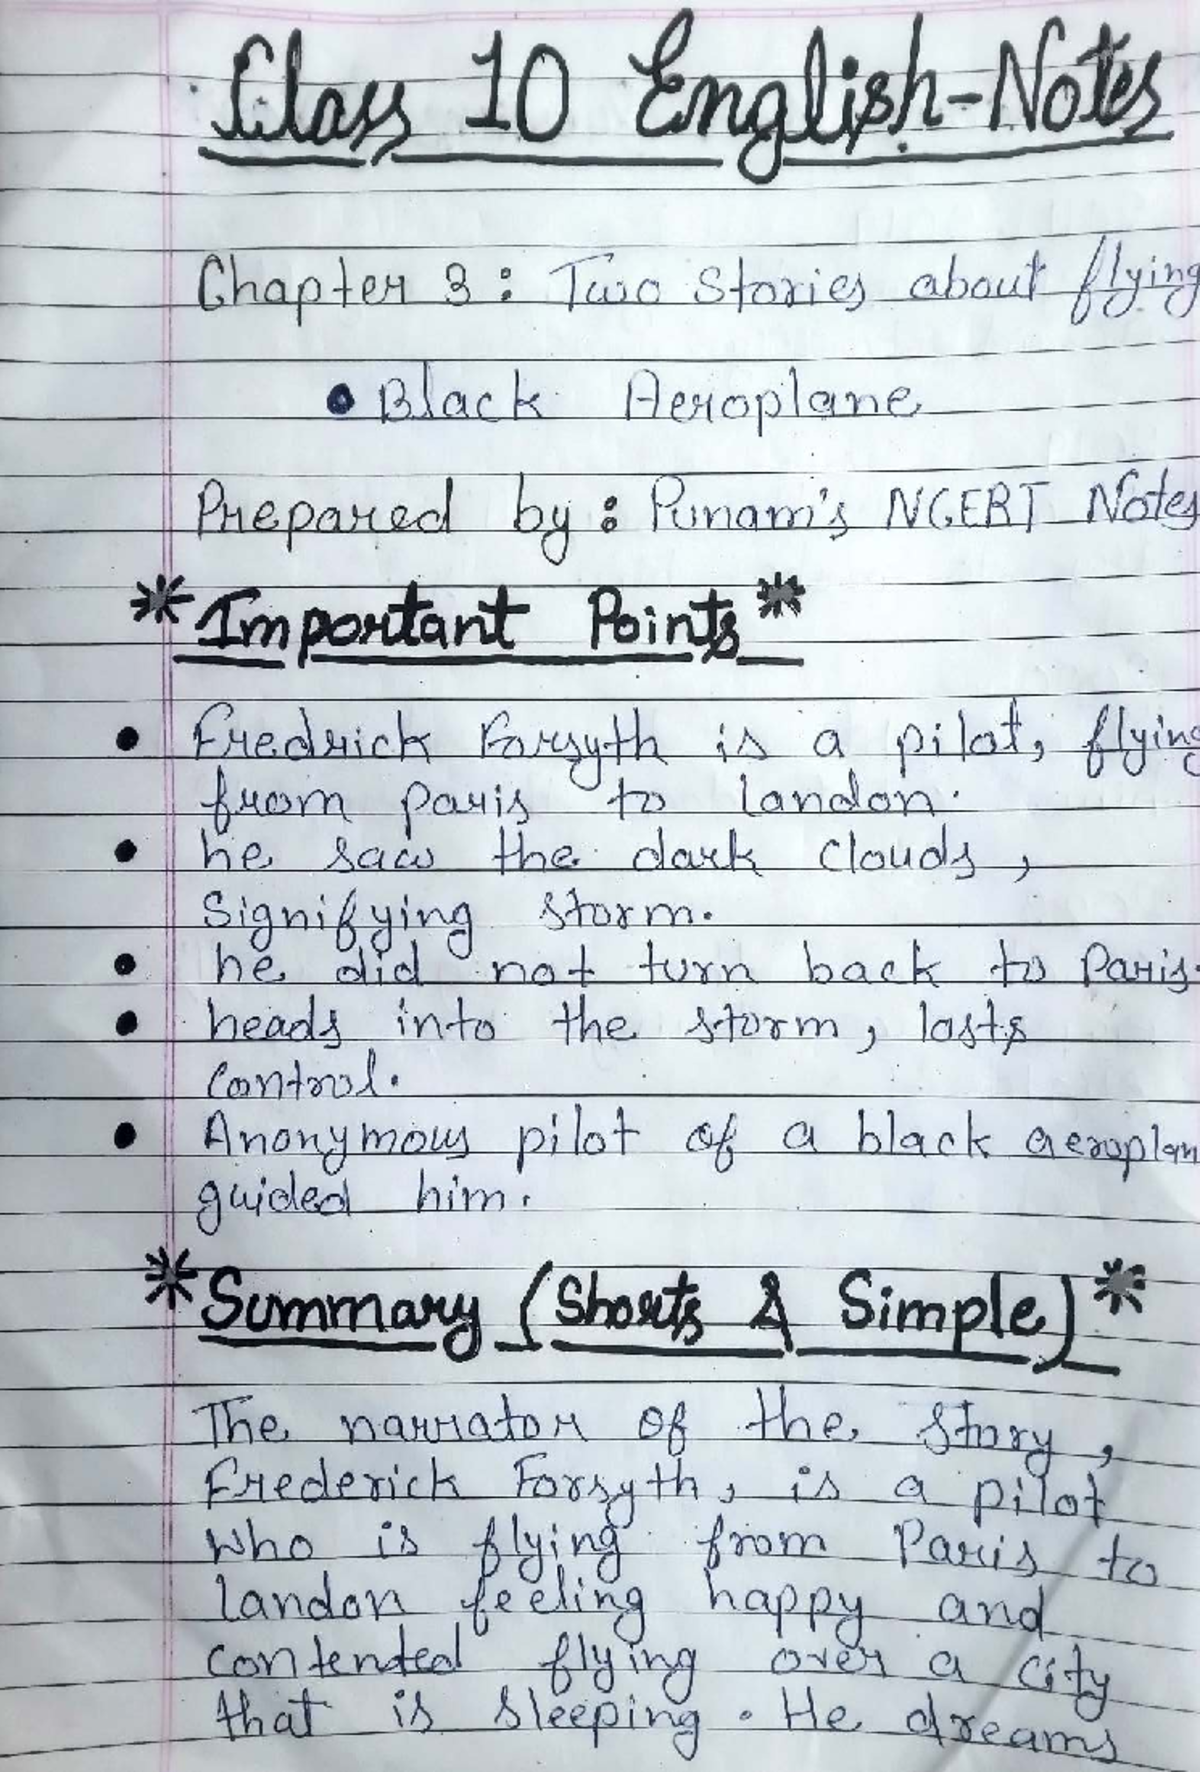 Class 10 English-Notes
Chapter 3: Two Stories about flying
• Black Aeroplane
Prepared by: Punam's NCERT Notes
*Important Points*
• Fredrick Forsyth is a pilot, flying
from Paris to landon.
• he saw the dark clouds,
Signifying storm.
• he did not turn back to Paris.
• heads into the storm, losts
Control.
• Anonymous pilot of a black aeroplan
guided him.
*Summary (Shorts & Simple)*
The narrator of the Story,
Frederick Forsyth, is a pilot
who is flying from Paris to
landon feeling happy and
contended flying over a city
that is sleeping. He dreams